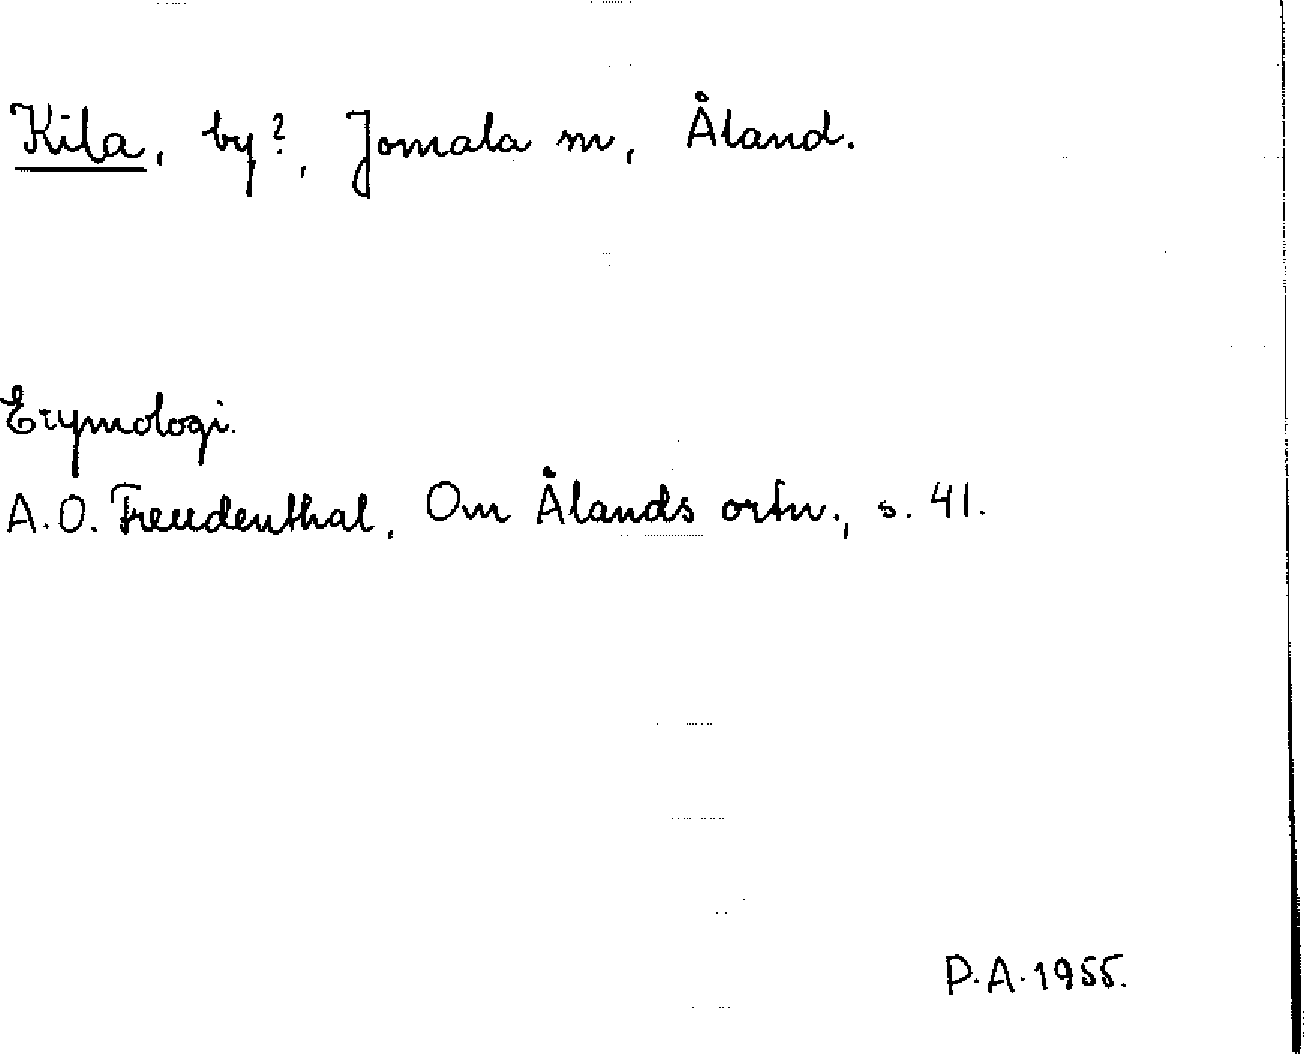 Kila, by?, Jomala m, Åland.
Etymologi.
A.O. Freudenthal, Om Ålands ortn., s. 41.
P.A. 1955.